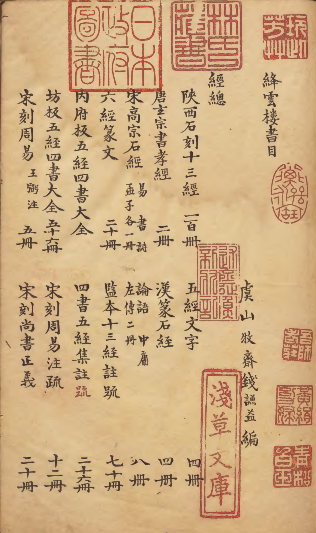 絳雲樓書目
虞山牧齋錢謙益編
經總
陝西石刻十三經 一百冊 五經文字 四冊
唐玄宗書孝經 二冊 漢篆石經 四冊
宋高宗石經 易書詩孟子各一冊 論語中庸左傳二冊 八冊
六經篆文 二十冊 監本十三經註疏 七十冊
內府板五經四書大全 四書五經集註 二十六冊
坊板五經四書大全 五十六冊 宋刻周易注疏 十二冊
宋刻周易 王弼注 五冊 宋刻尚書正義 二十冊
日本
政府
圖書
淺草文庫
林氏
藏書